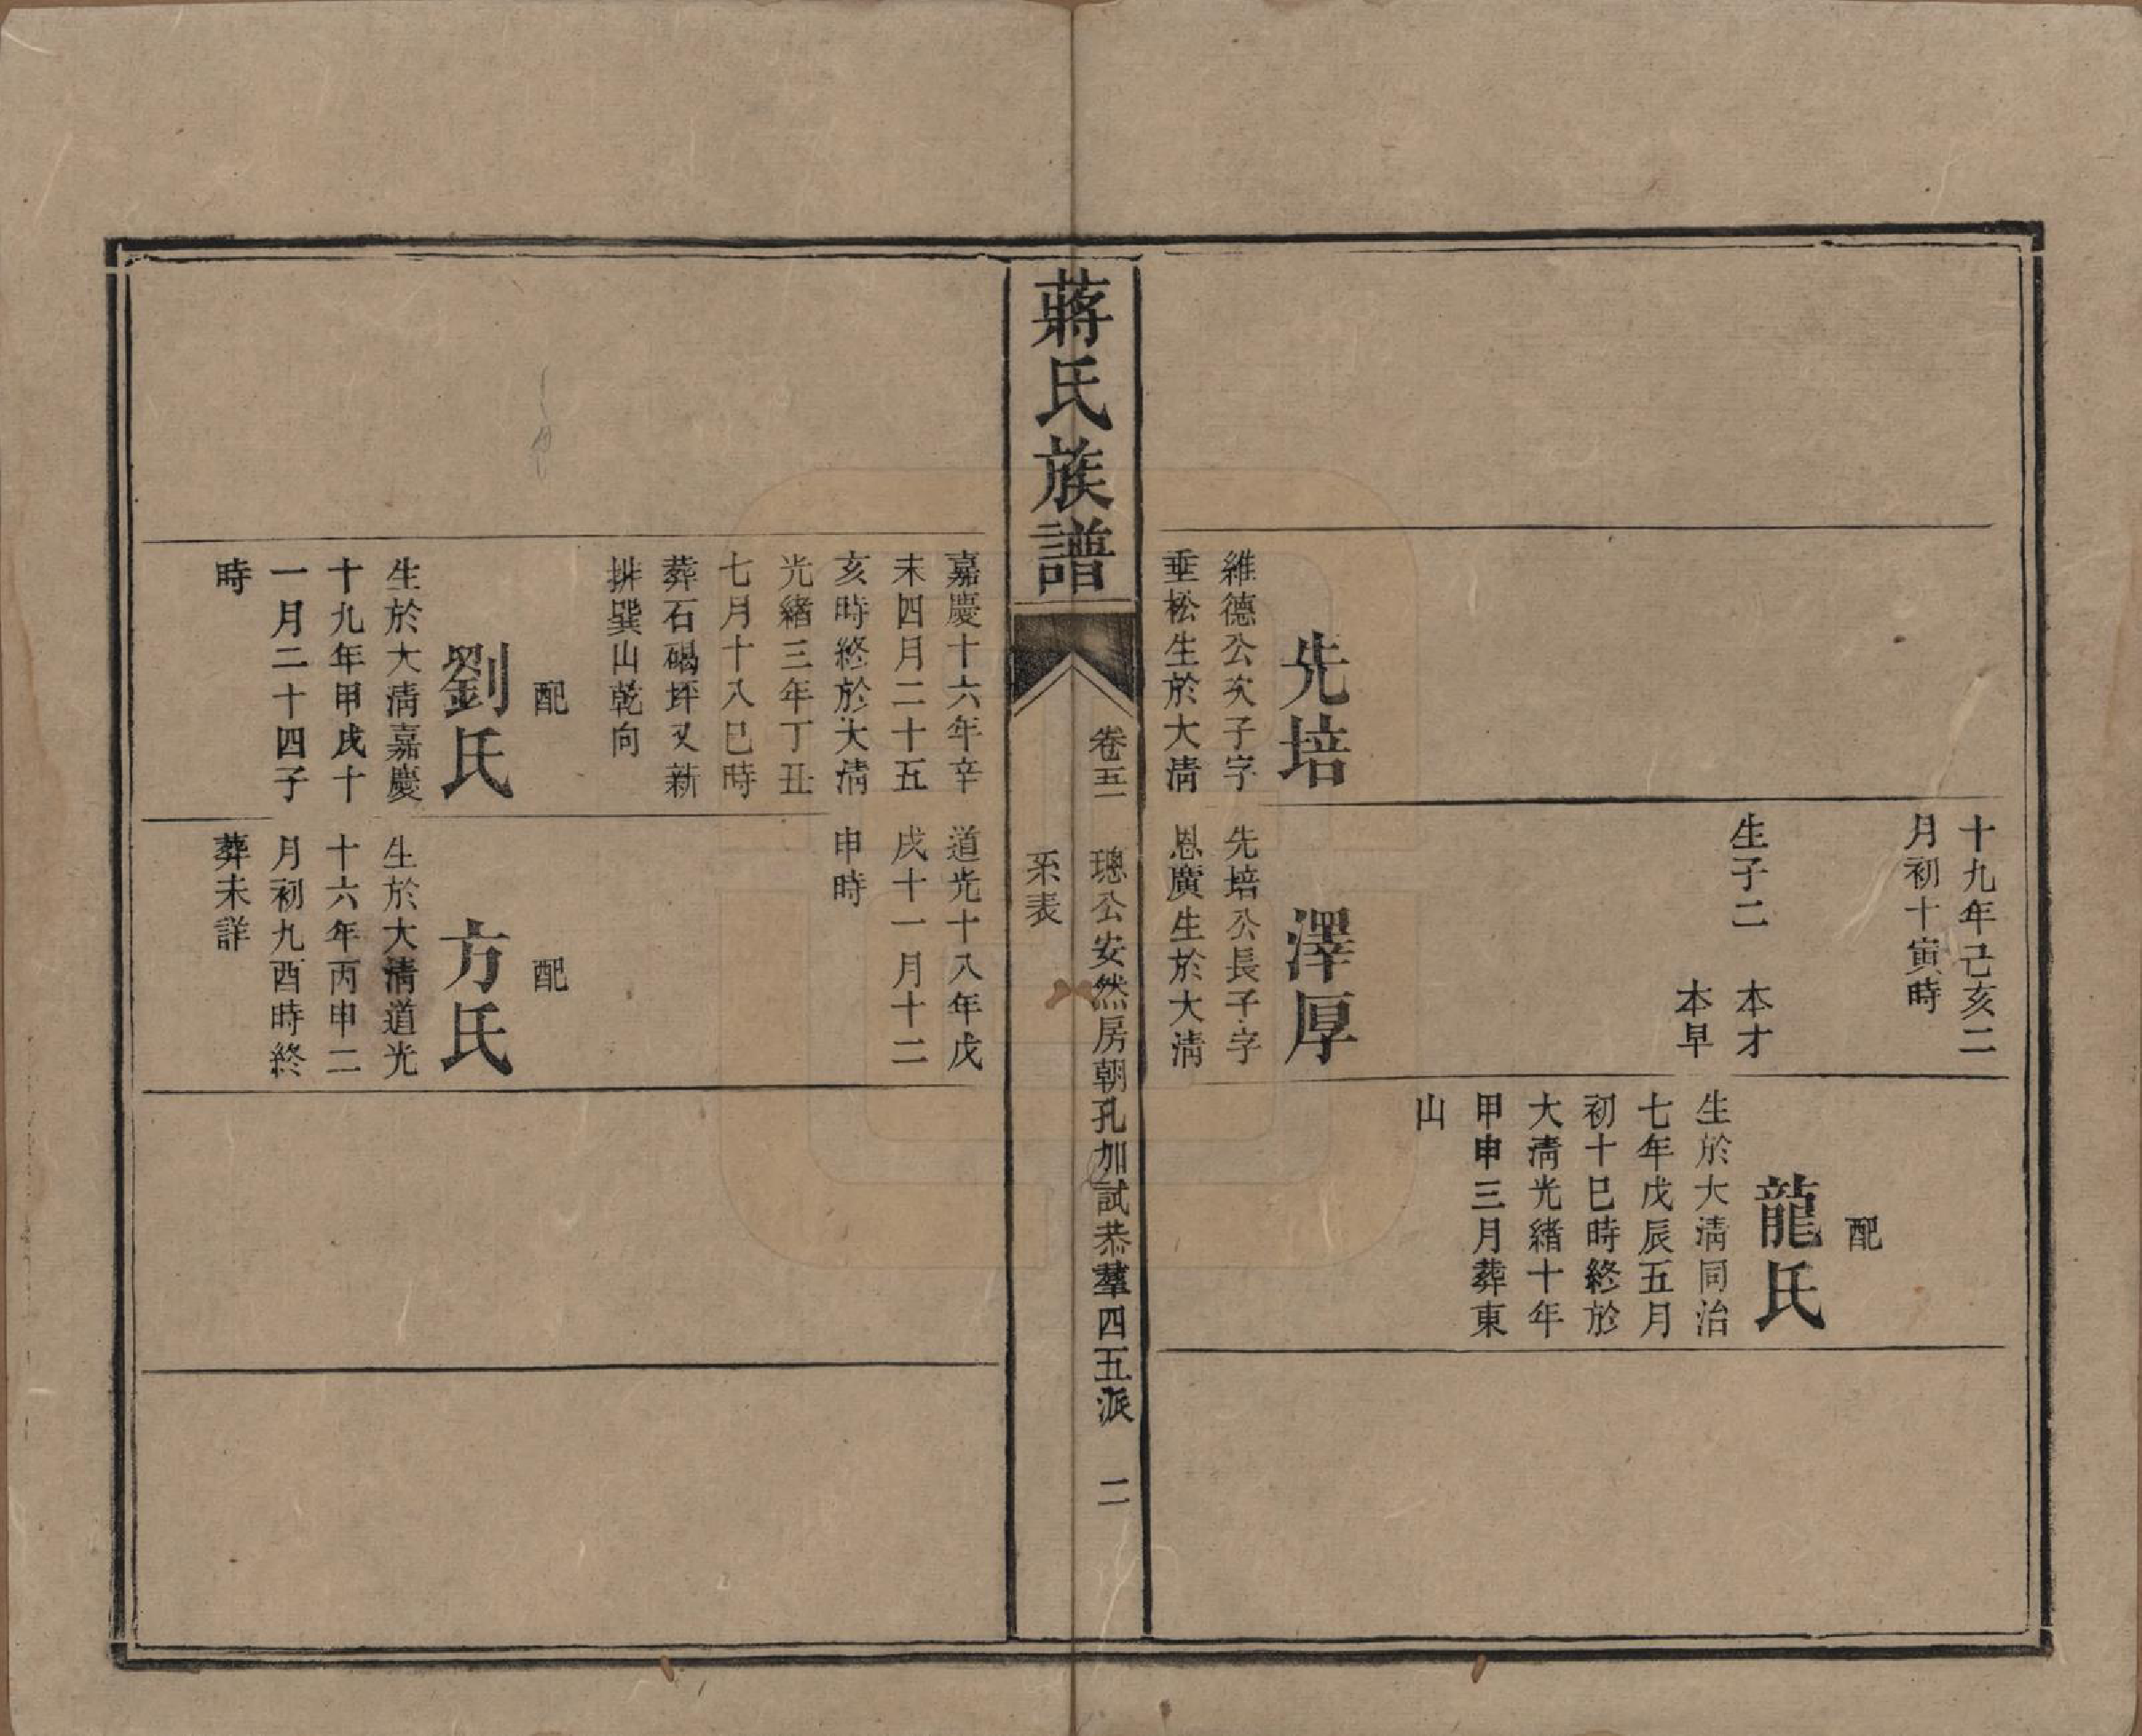 十九年己亥二
月初十寅時
生子二　本才
本早
配
龍氏
生於大淸同治
七年戊辰五月
初十巳時終於
大淸光緒十年
甲申三月葬東
山
先培
維德公次子字
垂松生於大淸
澤厚
先培公長子字
恩廣生於大淸
蔣氏族譜
卷五　璁公安然房朝孔加試恭羣四五派　二
系表
嘉慶十六年辛
未四月二十五
亥時終於大淸
光緒三年丁丑
七月十八巳時
葬石碣坪又新
拚巽山乾向
配
劉氏
生於大淸嘉慶
十九年甲戌十
一月二十四子
時
道光十八年戊
戌十一月十二
申時
配
方氏
生於大淸道光
十六年丙申二
月初九酉時終
葬未詳